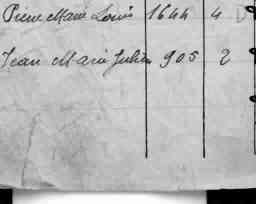 Pierre Marie Louis 1644 4 D
Jean Marie Julien 905 2